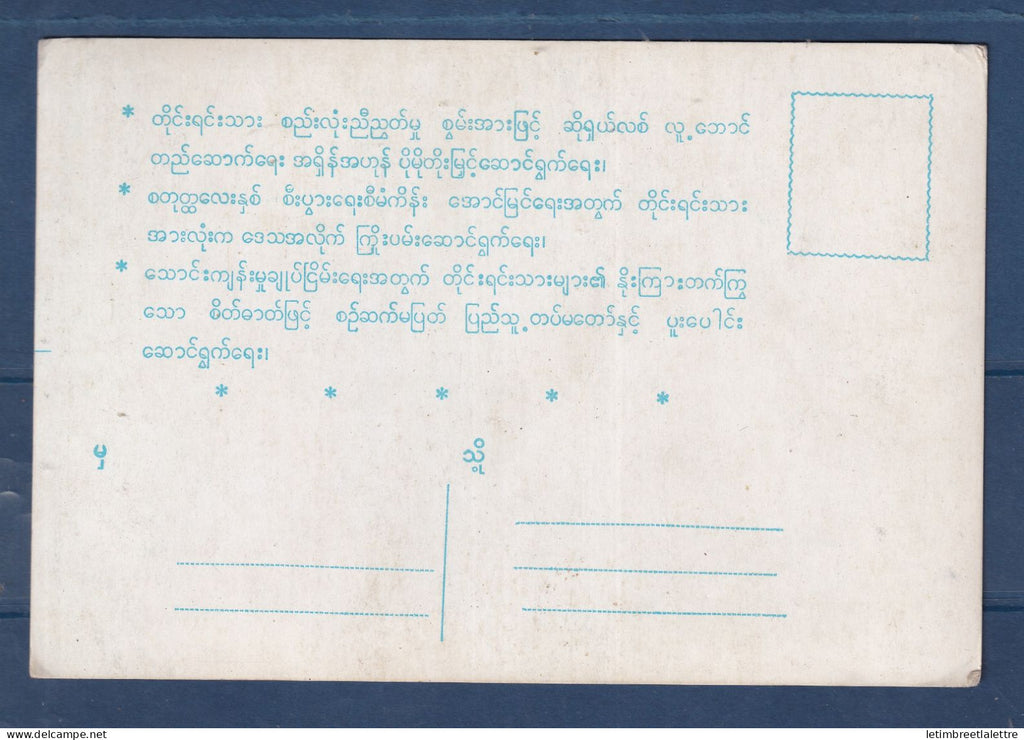 * တိုင်းရင်းသား စည်းလုံးညီညွတ်မှု စွမ်းအားဖြင့် ဆိုရှယ်လစ် လူ့ဘောင်
တည်ဆောက်ရေး အရှိန်အဟုန် ပိုမိုတိုးမြှင့်ဆောင်ရွက်ရေး၊
* စတုတ္ထလေးနှစ် စီးပွားရေးစီမံကိန်း အောင်မြင်ရေးအတွက် တိုင်းရင်းသား
အားလုံးက ဒေသအလိုက် ကြိုးပမ်းဆောင်ရွက်ရေး၊
* သောင်းကျန်းမှုချုပ်ငြိမ်းရေးအတွက် တိုင်းရင်းသားများ၏ နိုးကြားတက်ကြွ
သော စိတ်ဓာတ်ဖြင့် စဉ်ဆက်မပြတ် ပြည်သူ့တပ်မတော်နှင့် ပူးပေါင်း
ဆောင်ရွက်ရေး၊
* * * * *
မှ သို့
letimbreetlalettre
delcampe.net